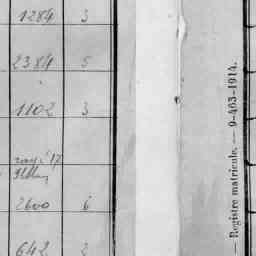 1284 3
2384 5
1102 3
2600 6
642 2
— Registre matricule. — 9-463-1914.